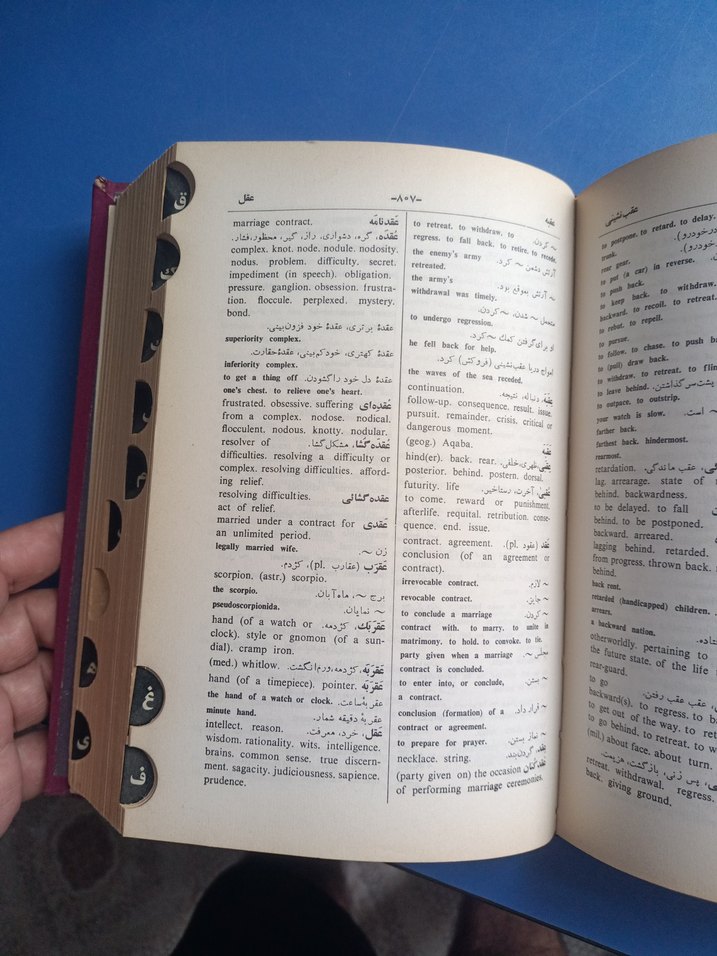 عقبه -۸۰۷- عقل
~ کردن. to retreat. to withdraw. to
regress. to fall back. to retire. to recede.
ارتش دشمن ~ کرد. the enemy's army
retreated.
~ ارتش بموقع بود. the army's
withdrawal was timely.
متحمل ~ شدن، ~ کردن.
to undergo regression.
او برای گرفتن کمك ~ کرد.
he fell back for help.
امواج دریا عقب‌نشینی (فروکش) کرد.
the waves of the sea receded.
عقبه. دنباله، نتیجه. continuation.
follow-up. consequence. result. issue.
pursuit. remainder. crisis. critical or
dangerous moment.
عقبه (geog.) Aqaba.
عقبی. قهری، خلفی. hind(er). back. rear.
posterior. behind. postern. dorsal.
عقبی. آخرت، رستاخیز. futurity. life
to come. reward or punishment.
afterlife. requital. retribution. conse-
quence. end. issue.
عقد (عقود pl.) contract. agreement.
conclusion (of an agreement or
contract).
~ لازم. irrevocable contract.
~ جایز. revocable contract.
~ کردن. to conclude a marriage
contract with. to marry. to unite in
matrimony. to hold. to convoke. to tie.
مجلس ~. party given when a marriage
contract is concluded.
~ بستن. to enter into, or conclude,
a contract.
~ قرار داد. conclusion (formation) of a
contract or agreement.
~ نماز بستن. to prepare for prayer.
عقد. گردن‌بند. necklace. string.
عقدکنان (party given) on the occasion
of performing marriage ceremonies.
عقدنامه marriage contract.
عقده. گره، دشواری، راز، گیر، محظور، فشار.
complex. knot. node. nodule. nodosity.
nodus. problem. difficulty. secret.
impediment (in speech). obligation.
pressure. ganglion. obsession. frustra-
tion. floccule. perplexed. mystery.
bond.
عقدهٔ برتری، عقدهٔ خود فزون‌بینی.
superiority complex.
عقدهٔ کهتری، خودکم‌بینی، عقدهٔ حقارت.
inferiority complex.
عقدهٔ دل خود را گشودن. to get a thing off
one's chest. to relieve one's heart.
عقده‌ای frustrated. obsessive. suffering
from a complex. nodose. nodical.
flocculent. nodous. knotty. nodular.
عقده‌گشا. مشکل‌گشا. resolver of
difficulties. resolving a difficulty or
complex. resolving difficulties. afford-
ing relief.
عقده‌گشائی resolving difficulties.
act of relief.
عقدی married under a contract for
an unlimited period.
زن ~. legally married wife.
عقرب (عقارب pl.)، کژدم.
scorpion. (astr.) scorpio.
برج ~، ماه آبان. the scorpio.
~ نمایان. pseudoscorpionida.
عقربك. کژدمه. hand (of a watch or
clock). style or gnomon (of a sun-
dial). cramp iron.
عقربه. کژدمه، ورم انگشت. (med.) whitlow.
عقربه. hand (of a timepiece). pointer.
عقربهٔ ساعت. the hand of a watch or clock.
عقربهٔ دقیقه شمار. minute hand.
عقل. خرد، معرفت. intellect. reason.
wisdom. rationality. wits. intelligence.
brains. common sense. true discern-
ment. sagacity. judiciousness. sapience.
prudence.
عقب نشینی
to postpone. to retard. to delay.
trunk.
rear gear.
to put (a car) in reverse.
to push back.
to keep back. to withdraw.
backward. to recoil. to retreat.
to rebut. to repell.
to pursue.
to follow. to chase. to push
to (pull) draw back.
to withdraw. to retreat. to
to leave behind.
to outpace. to outstrip.
your watch is slow.
farther back.
farthest back. hindermost.
rearmost.
عقب ماندگی. retardation.
lag. arrearage. state of
behind. backwardness.
to be delayed. to fall
behind. to be postponed.
backward. arreared.
lagging behind. retarded.
from progress. thrown back.
behind.
back rent.
retarded (handicapped) children.
arrears.
a backward nation.
otherworldly. pertaining to
the future state. of the life
rear-guard.
عقب عقب رفتن. to go
backward(s). to regress. to
to get out of the way. to
to go behind. to retreat. to
(mil.) about face. about turn.
پس زنی، بازگشت، هزیمت.
retreat. withdrawal. regress.
back. giving ground.
ق
ک
ه
ی
غ
ف